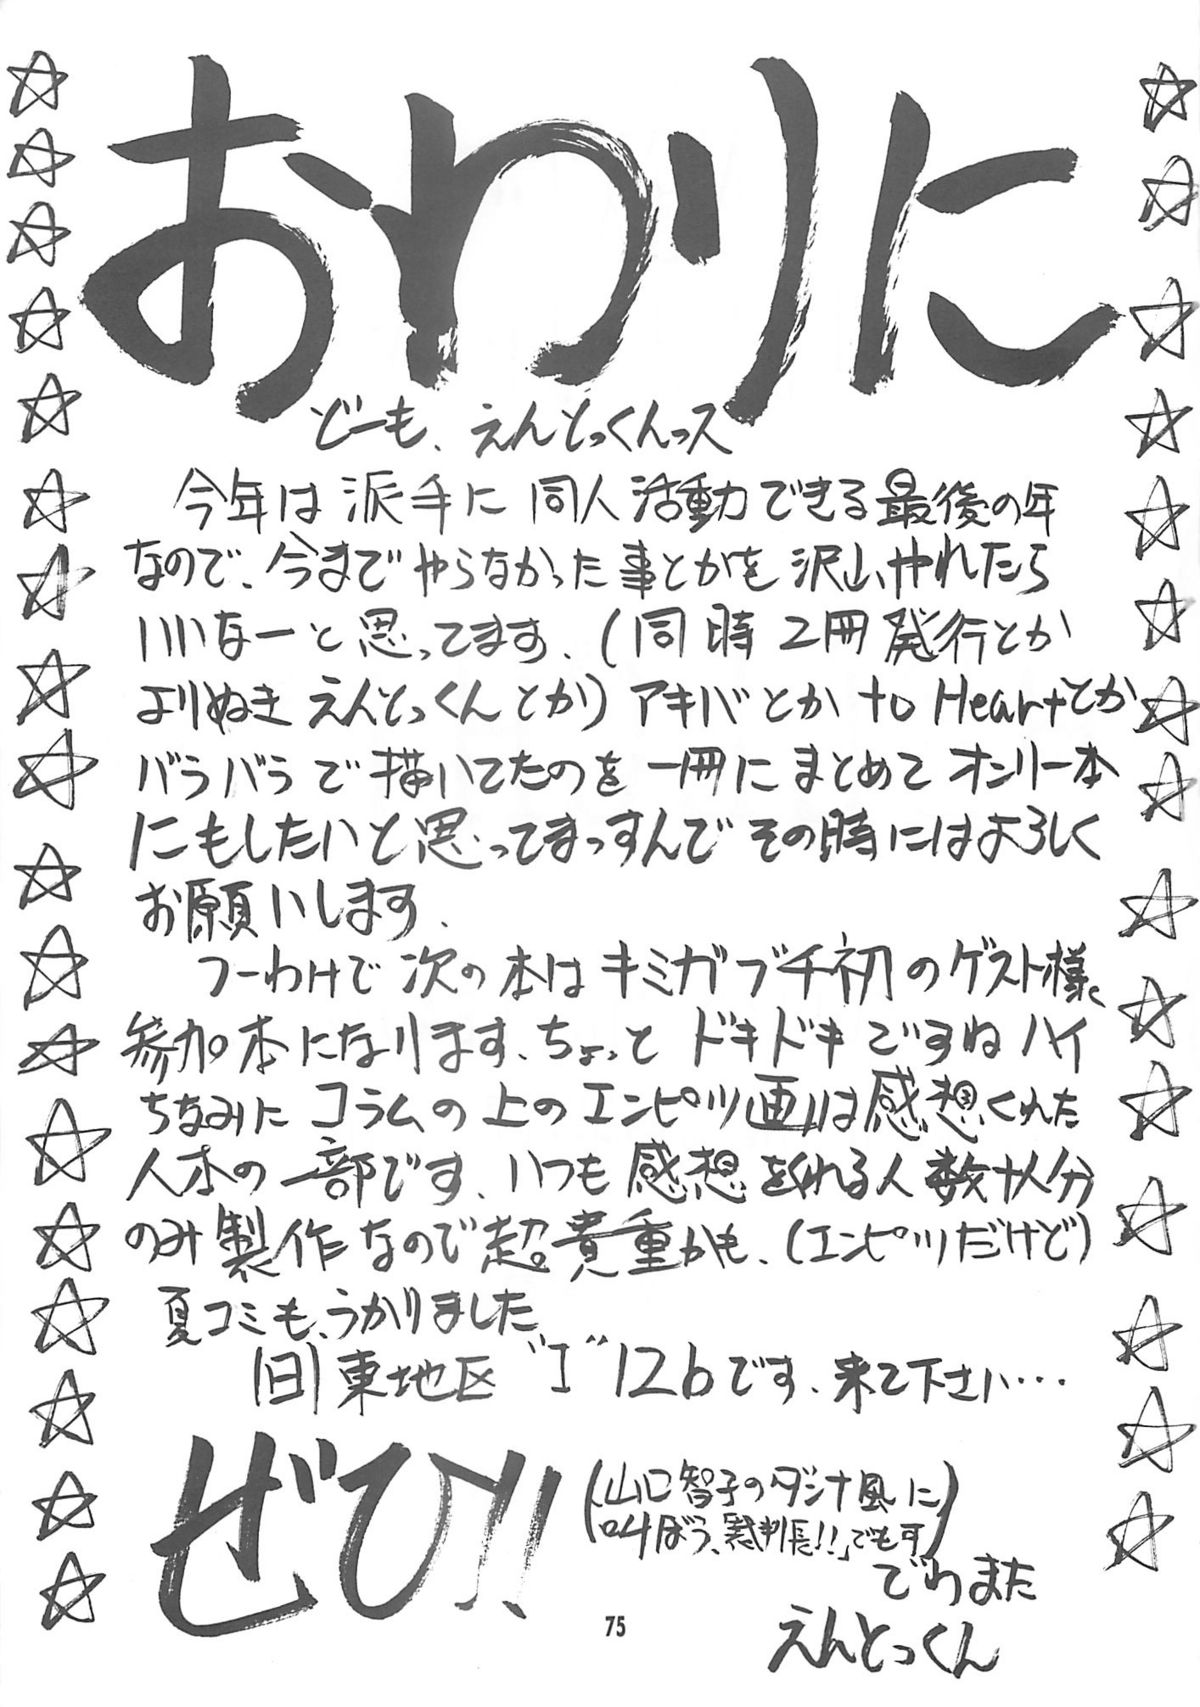 おわりに
どーも、えんとっくんっス
今年は派手に同人活動できる最後の年
なので、今までやらなかった事とかを沢山、やれたら
いいなーと思ってます、(同時2冊発行とか
よりぬきえんとっくんとか)アキバとか to Heartとか
バラバラで描いてたのを一冊にまとめてオンリー本
にもしたいと思ってまっすんでその時にはよろしく
お願いします、
つーわけで次の本はキミガブチ初のゲスト様
参加本になります、ちょっとドキドキですねハイ
ちなみにコラムの上のエンピツ画は感想くれた
人本の一部です、いつも感想をくれる人数+α人分
のみ製作なので超貴重かも、(エンピツだけど)
夏コミも、うかりました
(日)東地区"I"12bです、来て下さい…
ぜひ!!
(山口智子のダシナ風に
叫ぼう、「裁判長!!」でも可)
でわまた
えんとっくん
75